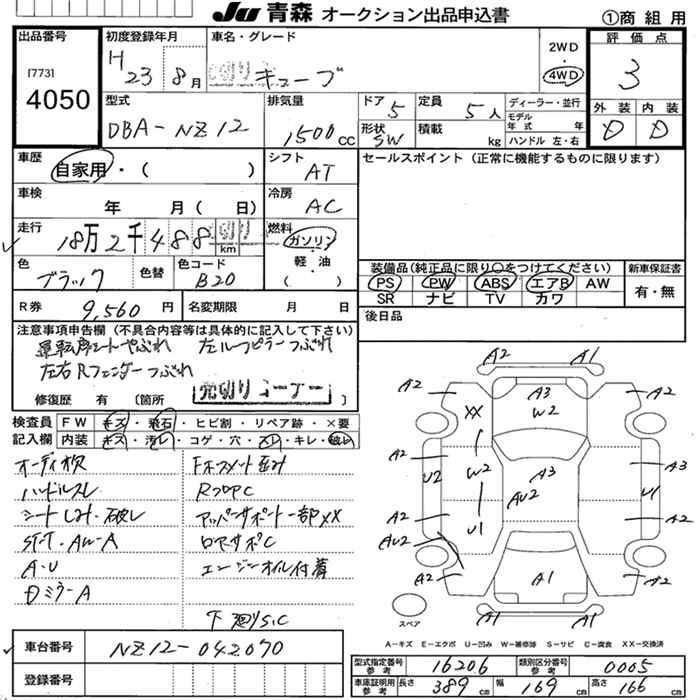 Ju 青森 オークション出品申込書
①商組用
出品番号
17731
4050
初度登録年月
H23 8月
車名・グレード
キューブ
2WD
4WD
評価点
3
型式
DBA-NZ12
排気量
1500cc
ドア 5
定員 5人
形状 SW
積載 kg
ディーラー・並行
モデル年式 年
ハンドル 左・右
外装
内装
D
D
車歴
自家用・( )
シフト
AT
セールスポイント(正常に機能するものに限ります)
車検
年 月( 日)
冷房
AC
走行
18万2千488
km
燃料
ガソリン
軽・油
( )
色
ブラック
色替
色コード
B20
装備品(純正品に限り○をつけてください)
PS PW ABS エアB AW
SR ナビ TV カワ
新車保証書
有・無
R券
9,560円
名変期限 月 日
後日品
注意事項申告欄(不具合内容等は具体的に記入して下さい)
運転席シートやぶれ 左ルーフピラーつぶれ
左右Rフェンダーつぶれ
売切りコーナー
修復歴 有 〔箇所 〕
検査員
記入欄
FW キズ・飛石・ヒビ割・リペア跡・×要
内装 キズ・汚レ・コゲ・穴・スレ・キレ・破レ
オーディオ欠
ハンドルスレ
シートしみ・破レ
ST-T・AW-A
A・U
Dミラ-A
RフロアC
アッパーサポート一部XX
ロアサポC
エンジンオイル付着
下廻りS.C
A2 A1
A2 A3 A2
XX W2
A2 U2 W2 A3 A3 U1
AU2
A2 U1 A2
AU2
A2 A1 A2
A1 A1
スペア
A-キズ E-エクボ U-凹み W-補修跡 S-サビ C-腐食 XX-交換済
車台番号
NZ12-042070
登録番号
型式指定番号 参考
16206
類別区分番号 参考
0005
車庫証明用 参考
長さ 389cm
幅 169cm
高さ 166cm